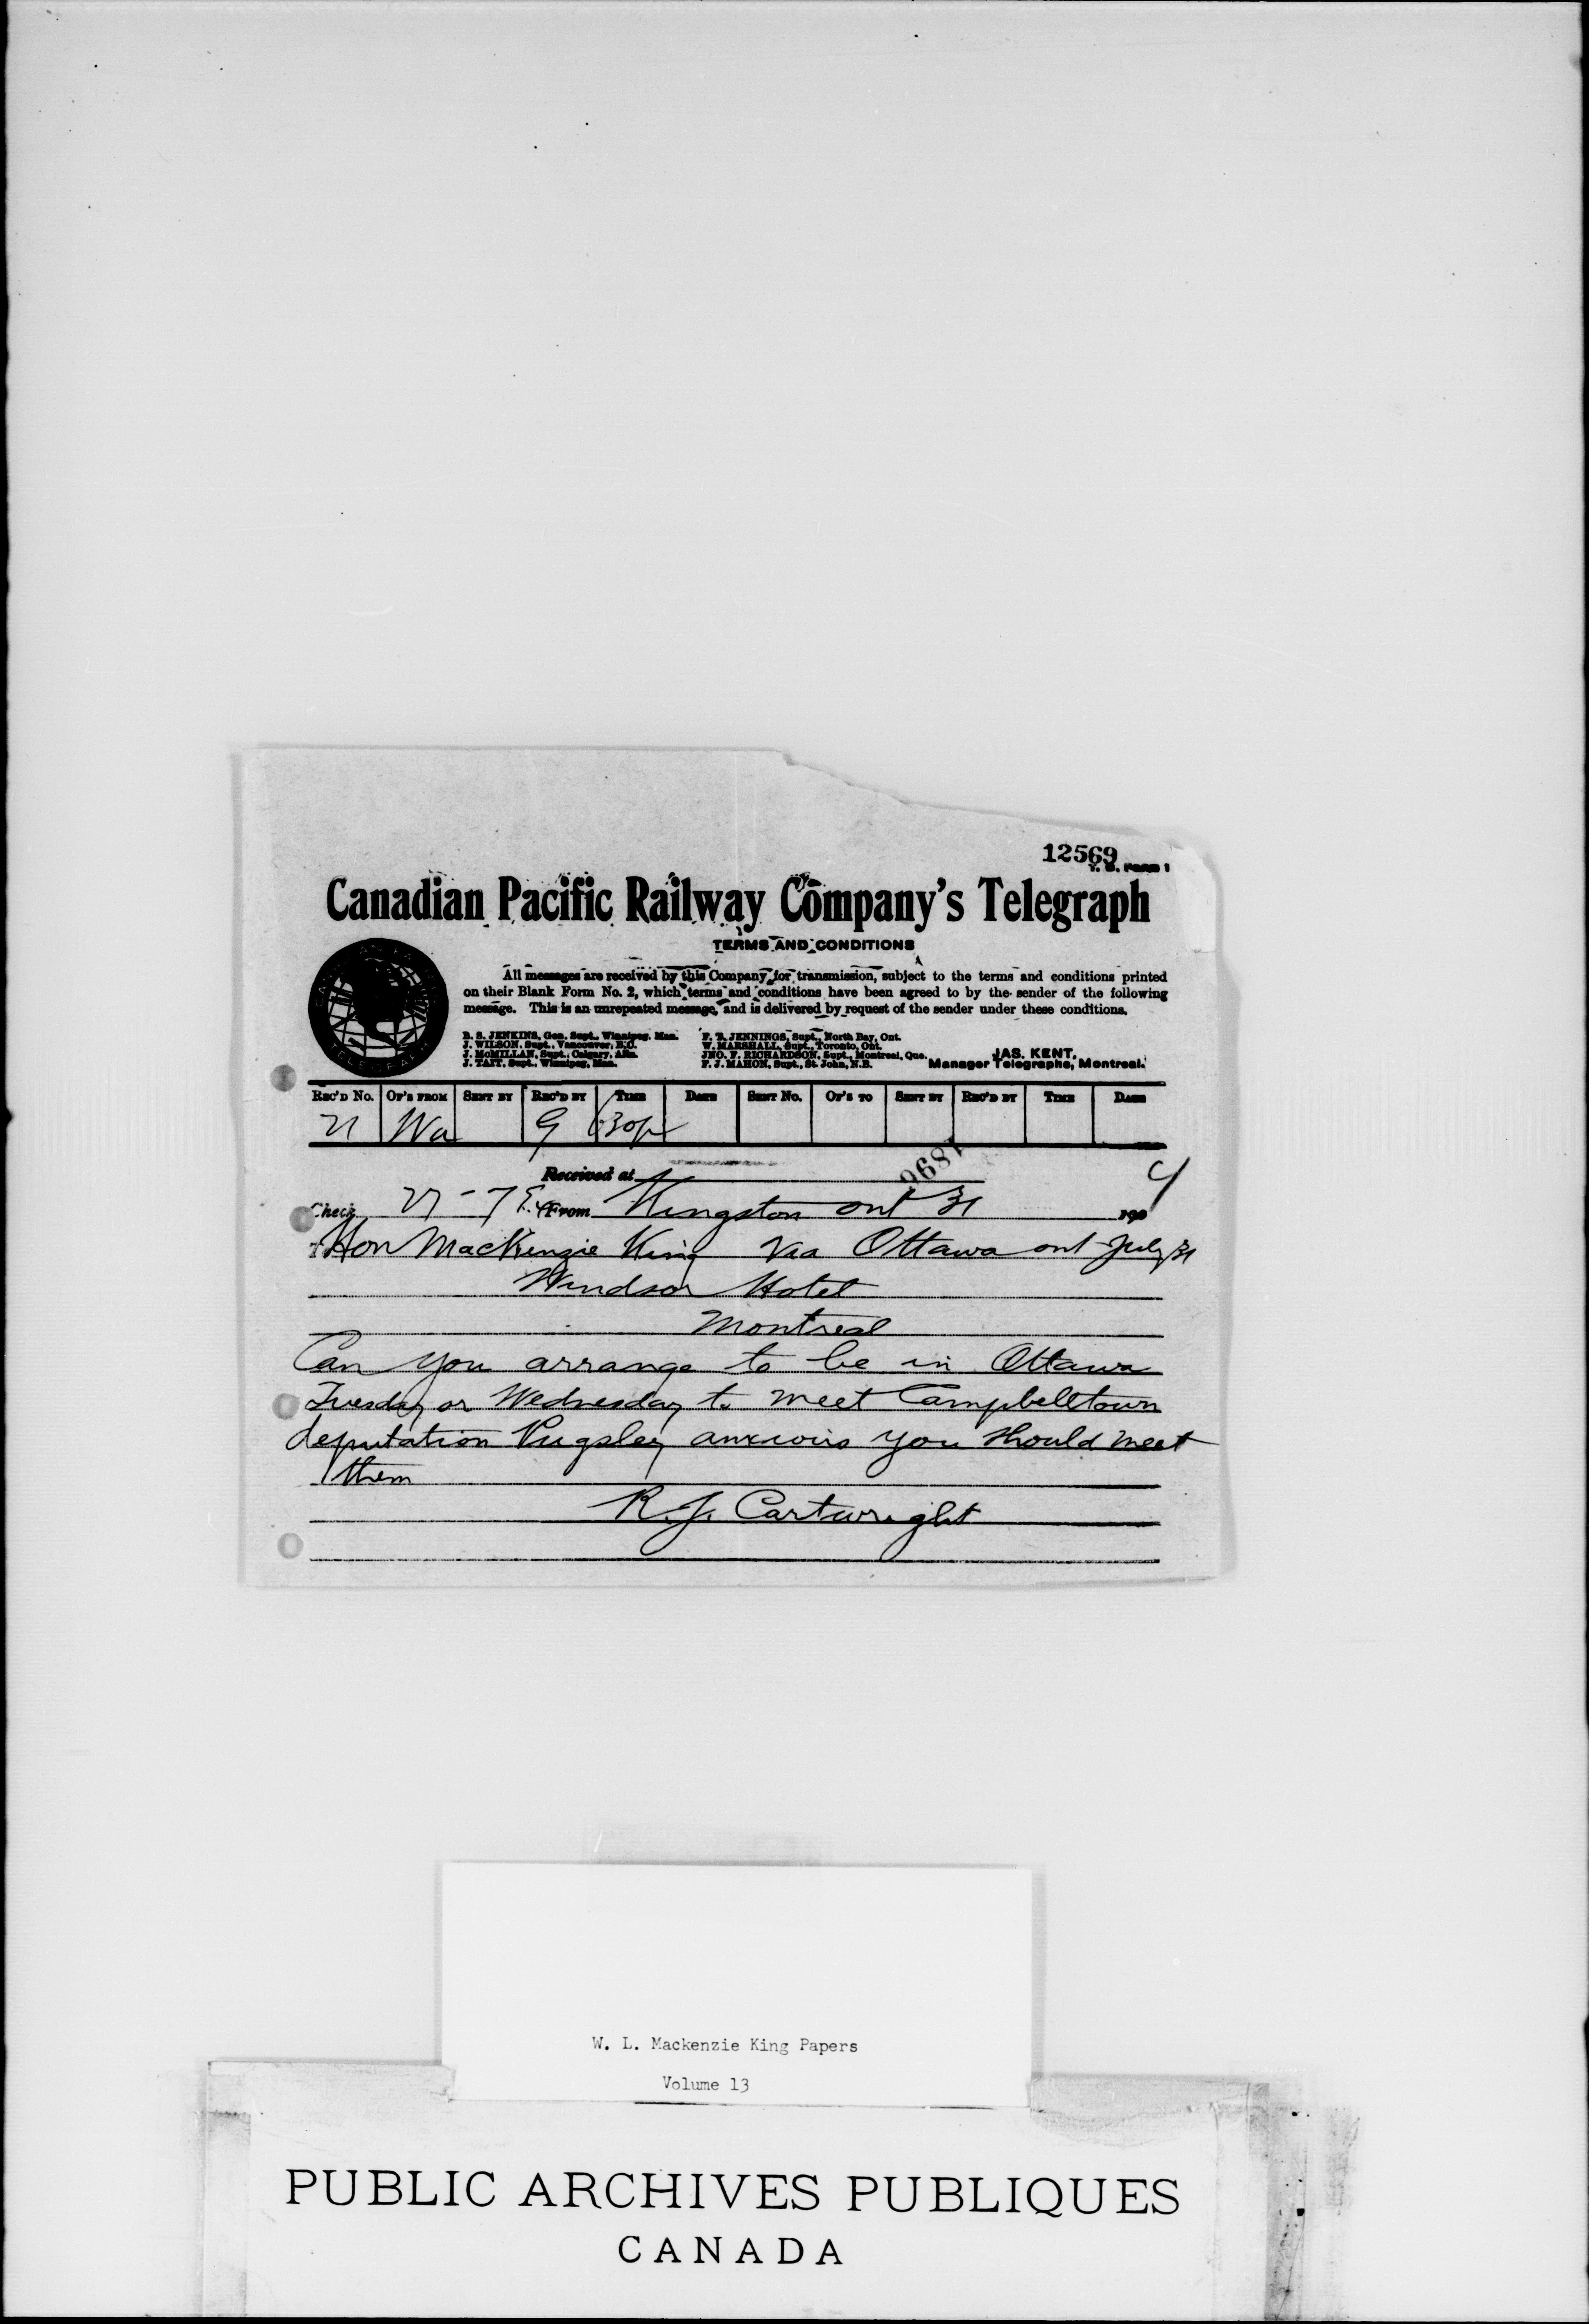 12569
T. D. FORM 1
Canadian Pacific Railway Company's Telegraph
TERMS AND CONDITIONS
All messages are received by this Company for transmission, subject to the terms and conditions printed
on their Blank Form No. 2, which terms and conditions have been agreed to by the sender of the following
message. This is an unrepeated message, and is delivered by request of the sender under these conditions.
B. S. JENKINS, Gen. Supt., Winnipeg, Man.
J. WILSON, Supt., Vancouver, B.C.
J. McMILLAN, Supt., Calgary, Alta.
J. TAIT, Supt., Winnipeg, Man.
F. T. JENNINGS, Supt., North Bay, Ont.
W. MARSHALL, Supt., Toronto, Ont.
JNO. F. RICHARDSON, Supt., Montreal, Que.
F. J. MAHON, Supt., St. John, N.B.
JAS. KENT,
Manager Telegraphs, Montreal.
TELEGRAPH
REC'D No. OP'S FROM SENT BY REC'D BY TIME DATE SENT No. OP'S TO SENT BY REC'D BY TIME DATE
21 Wa 9 30p
Received at
Check From Kingston ont 31 190
To Hon MacKenzie King Via Ottawa ont July 31
Windsor Hotel
Montreal
Can you arrange to be in Ottawa
Tuesday or Wednesday to meet Campbelltown
deputation Pugsley anxious you should meet
them
R. J. Cartwright
W. L. Mackenzie King Papers
Volume 13
PUBLIC ARCHIVES PUBLIQUES
CANADA